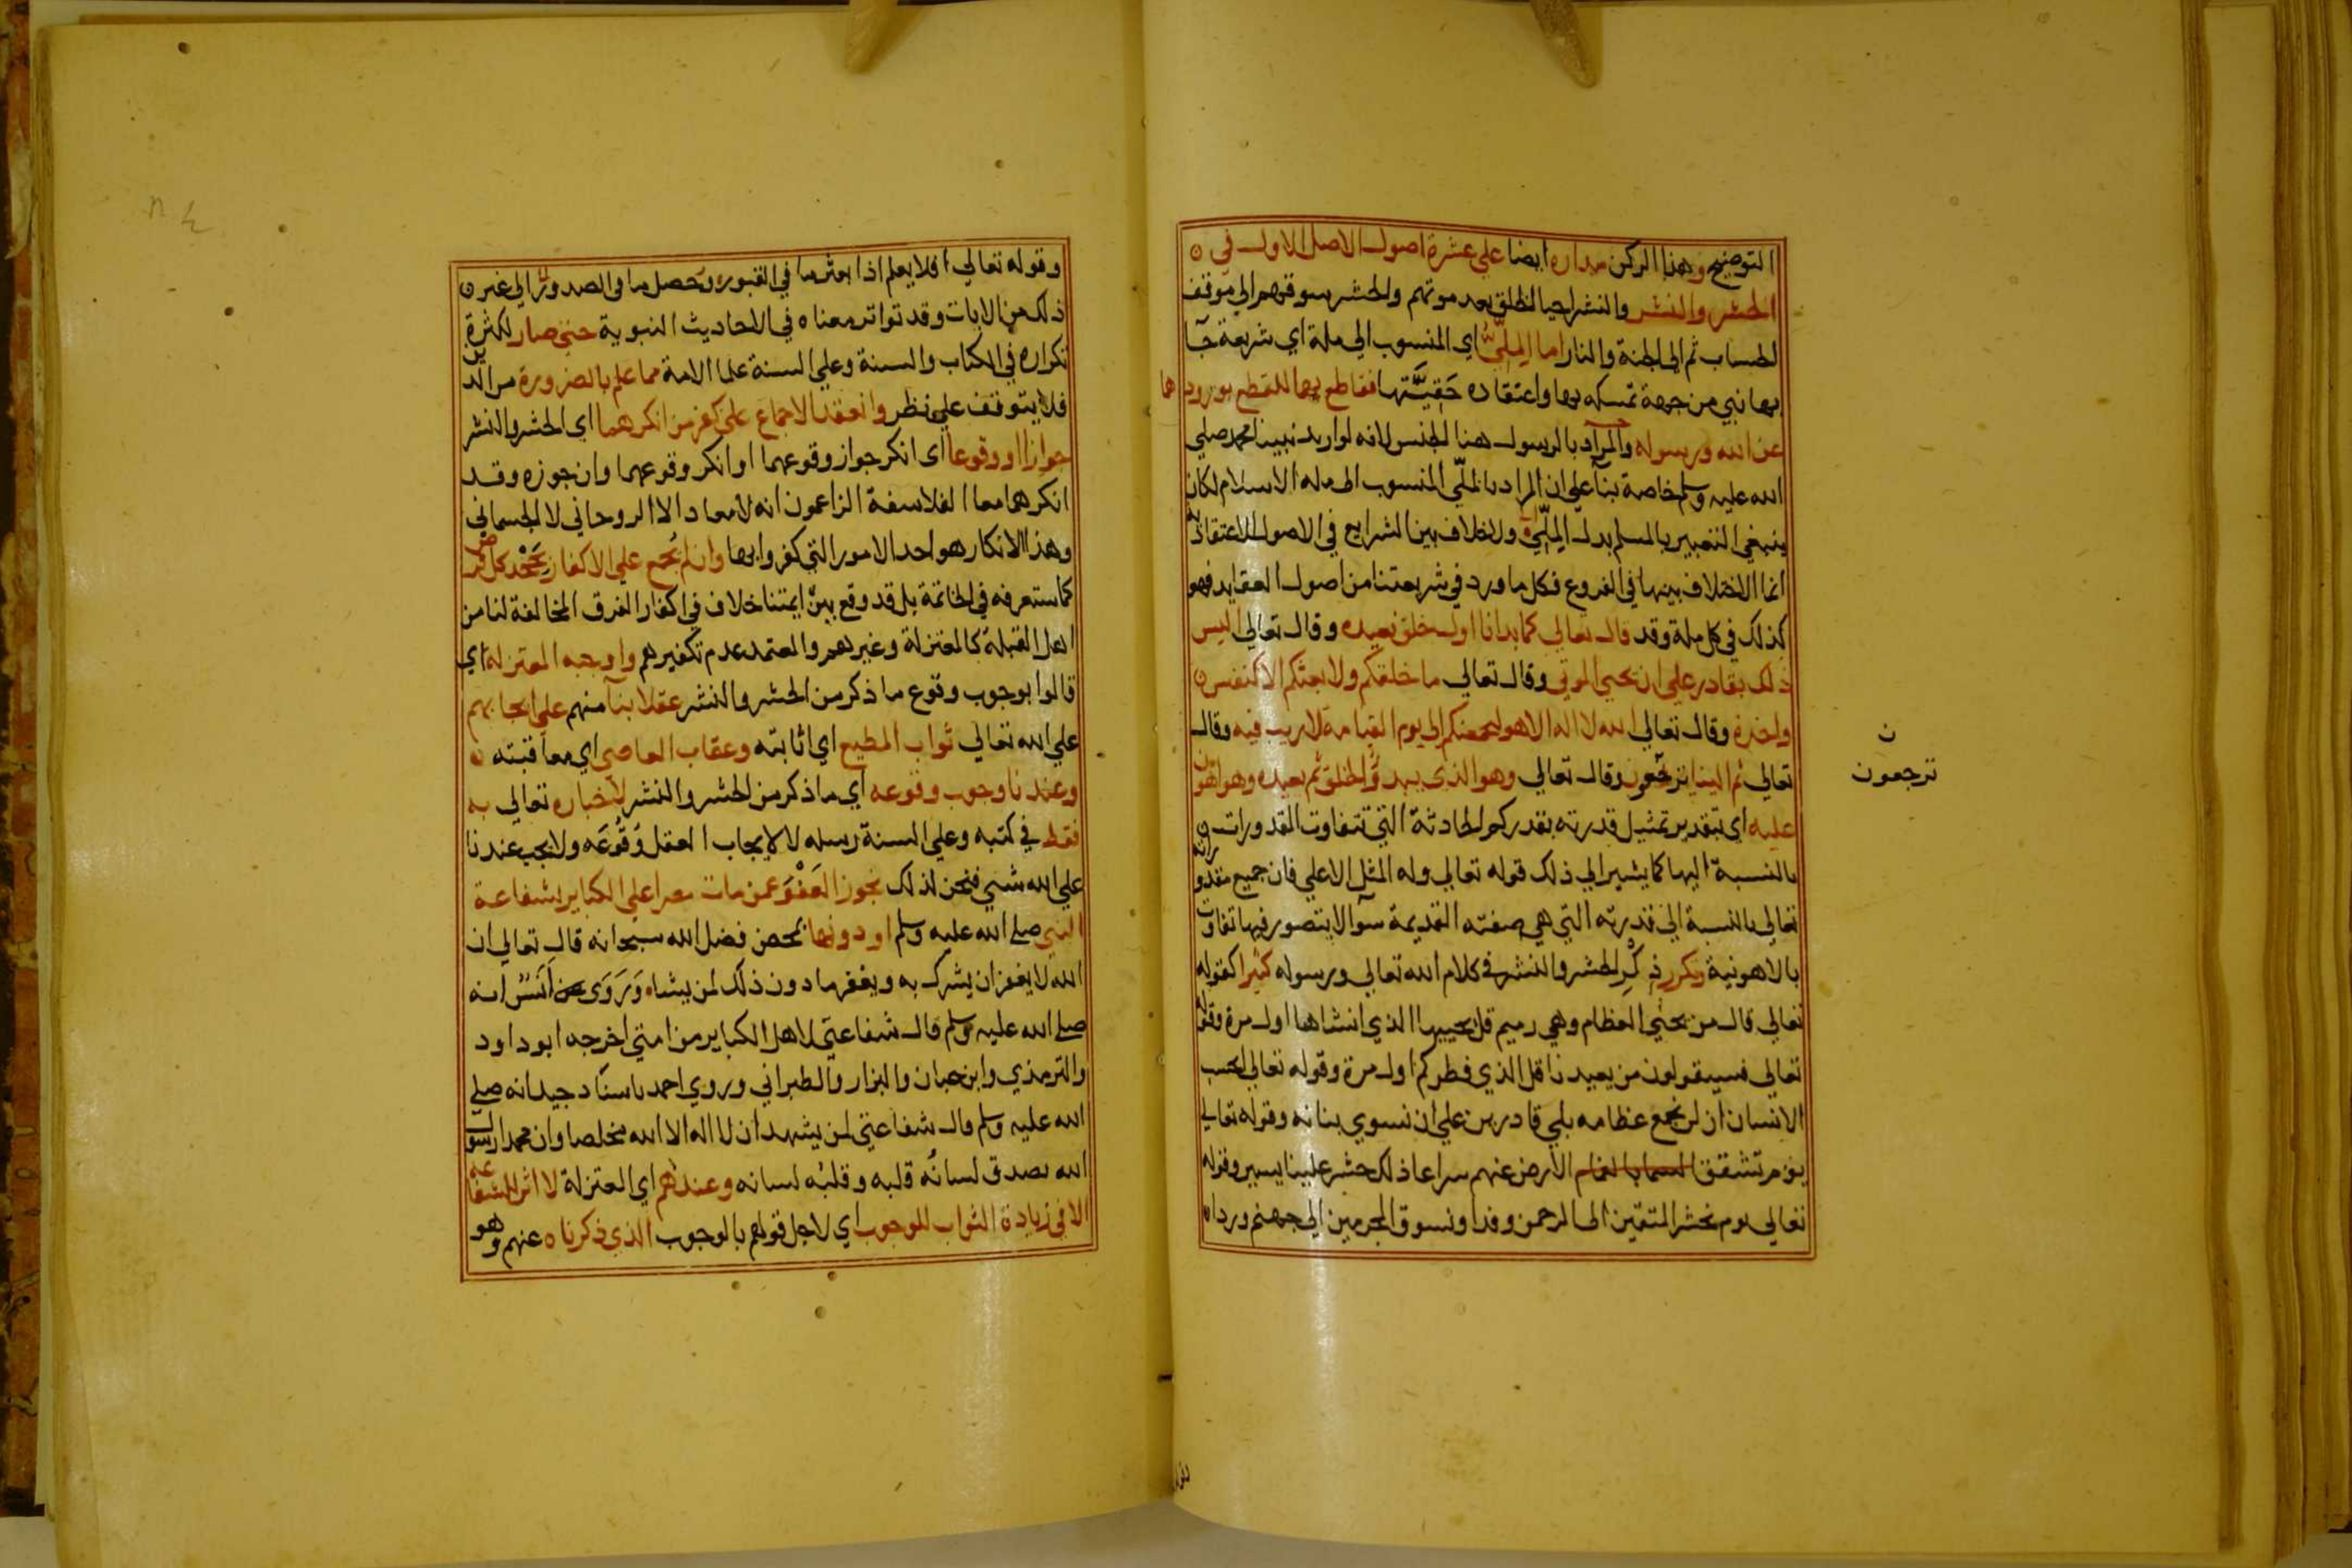 التوضيح وهذا الركن مداره ايضا علي عشرة اصول الاصل الاول في
الحشر والنشر والنشر احيا الخلق بعد موتهم والحشر سوقهم الي موقف
الحساب ثم الي الجنة والنار اما المِلِّيُّ اي المنسوب الي ملة اي شريعة جآ
بها نبي من جهة تمسكه بها واعتقاده حَقِيَّتها فقاطع بهما للقطع بورودهما
عن الله ورسوله والمراد بالرسول هنا الجنس لانه لو اريد نبينا محمد صلي
الله عليه وسلم خاصة بنآ علي ان المراد بالملّي المنسوب الي ملة الاسلام لكان
ينبغي التعبير بالمسلم بدل المِلِّيّ ولا خلاف بين الشرايع في الاصول الاعتقادية
انما الاختلاف بينها في الفروع فكل ما ورد في شريعتنا من اصول العقايد فهو
كذلك في كل ملة وقد قال تعالي كما بدانا اول خلق نعيده وقال تعالي اليس
ذلك بقادر علي ان يحيي الموتي وقال تعالي ما خلقكم ولا بعثكم الا كنفس
واحدة وقال تعالي الله لا اله الا هو ليجمعنكم الي يوم القيامة لا ريب فيه وقال
تعالي ثم الينا ترجعون وقال تعالي وهو الذي يبدؤ الخلق ثم يعيده وهو اهون
ن
ترجعون
عليه اي بتقدير تمثيل قدرته بقدركم الحادثة التي تتفاوت المقدورات
بالنسبة اليها كما يشير الي ذلك قوله تعالي وله المثل الاعلي فان جميع مقدوراته
تعالي بالنسبة الي قدرته التي هي صفته القديمة سوآ لا يتصور فيها تفاوت
بالاهونية وتكرر ذِكْرُ الحشر والنشر في كلام الله تعالي ورسوله كثيرا كقوله
تعالي قال من يحيي العظام وهي رميم قل يحييها الذي انشاها اول مرة وقوله
تعالي فسيقولون من يعيدنا قل الذي فطركم اول مرة وقوله تعالي ايحسب
الانسان ان لن نجمع عظامه بلي قادرين علي ان نسوي بنانه وقوله تعالي
يوم تشقق السما بالغمام الارض عنهم سراعا ذلك حشر علينا يسير وقوله
تعالي يوم نحشر المتقين الي الرحمن وفدا ونسوق المجرمين الي جهنم وردا
وقوله تعالي افلا يعلم اذا بعثر ما في القبور وحصل ما في الصدور الي غير
ذلك من الايات وقد تواتر معناه في الاحاديث النبوية حتي صار لكثرة
تكراره في الكتاب والسنة وعلي السنة علما الامة مما علم بالضرورة من الدين
فلا يتوقف علي نظر وانعقد الاجماع علي كفر من انكرهما اي الحشر والنشر
جوازا او وقوعا اي انكر جواز وقوعهما او انكر وقوعهما وان جوزه وقد
انكرهما معا الفلاسفة الزاعمون انه لا معاد الا الروحاني لا الجسماني
وهذا الانكار هو احد الامور التي كفروا بها وان لم يُجمع علي الاكفار بِجَحْد كل فرض
كما ستعرفه في الخاتمة بل قد وقع بين ايمتنا خلاف في اكفار الفرق المخالفة لنا من
اهل القبلة كالمعتزلة وغيرهم والمعتمد عدم تكفيرهم واوجبه المعتزلة اي
قالوا بوجوب وقوع ما ذكر من الحشر والنشر عقلا بنآ منهم علي ايجابهم
علي الله تعالي ثواب المطيع اي اثابته وعقاب العاصي اي معاقبته
وعندنا وجوب وقوعه اي ما ذكر من الحشر والنشر لاخباره تعالي به
فقط في كتبه وعلي السنة رسله لا لايجاب العقل وُقُوعَه ولا يجب عندنا
علي الله شي فنحن لذلك نجوز العَفْوَ عمن مات مصرا علي الكباير بشفاعة
النبي صلي الله عليه وسلم او دونها بمحض فضل الله سبحانه قال تعالي ان
الله لا يغفر ان يشرك به ويغفر ما دون ذلك لمن يشاء وَرَوَي عن اَنَسٌ انه
صلي الله عليه وسلم قال شفاعتي لاهل الكباير من امتي اخرجه ابو داود
والترمذي وابن حبان والبزار والطبراني وروي احمد باسناد جيد انه صلي
الله عليه وسلم قال شفاعتي لمن يشهد ان لا اله الا الله مخلصا وان محمدا رسول
الله يصدق لسانُه قلبه وقلبُه لسانه وعندهم اي المعتزلة لا اثر للشفاعة
الا في زيادة الثواب للوجوب اي لاجل قولهم بالوجوب الذي ذكرناه عنهم وهو